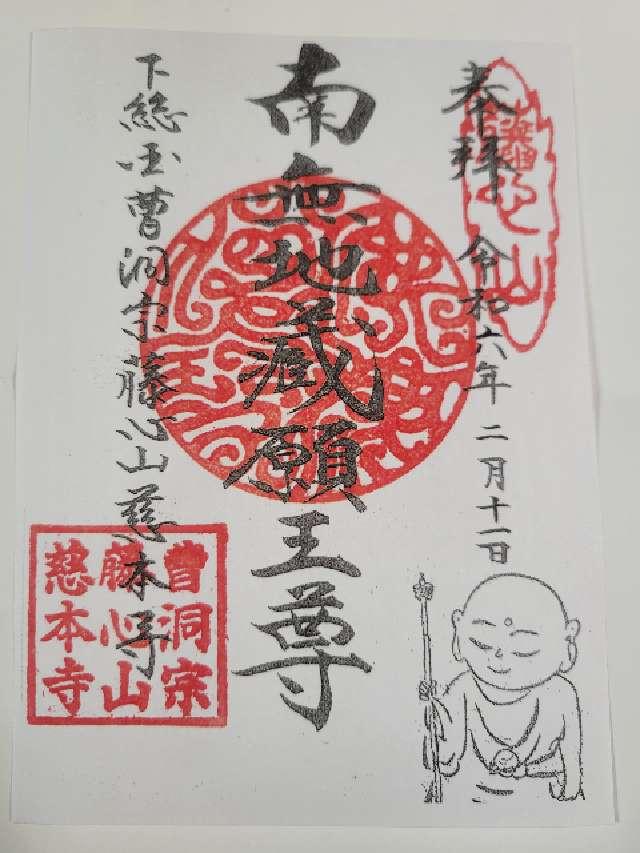 奉拝
令和六年 二月十一日
南無地蔵願王尊
下総国曹洞宗藤心山慈本寺
曹洞宗
藤心山
慈本寺